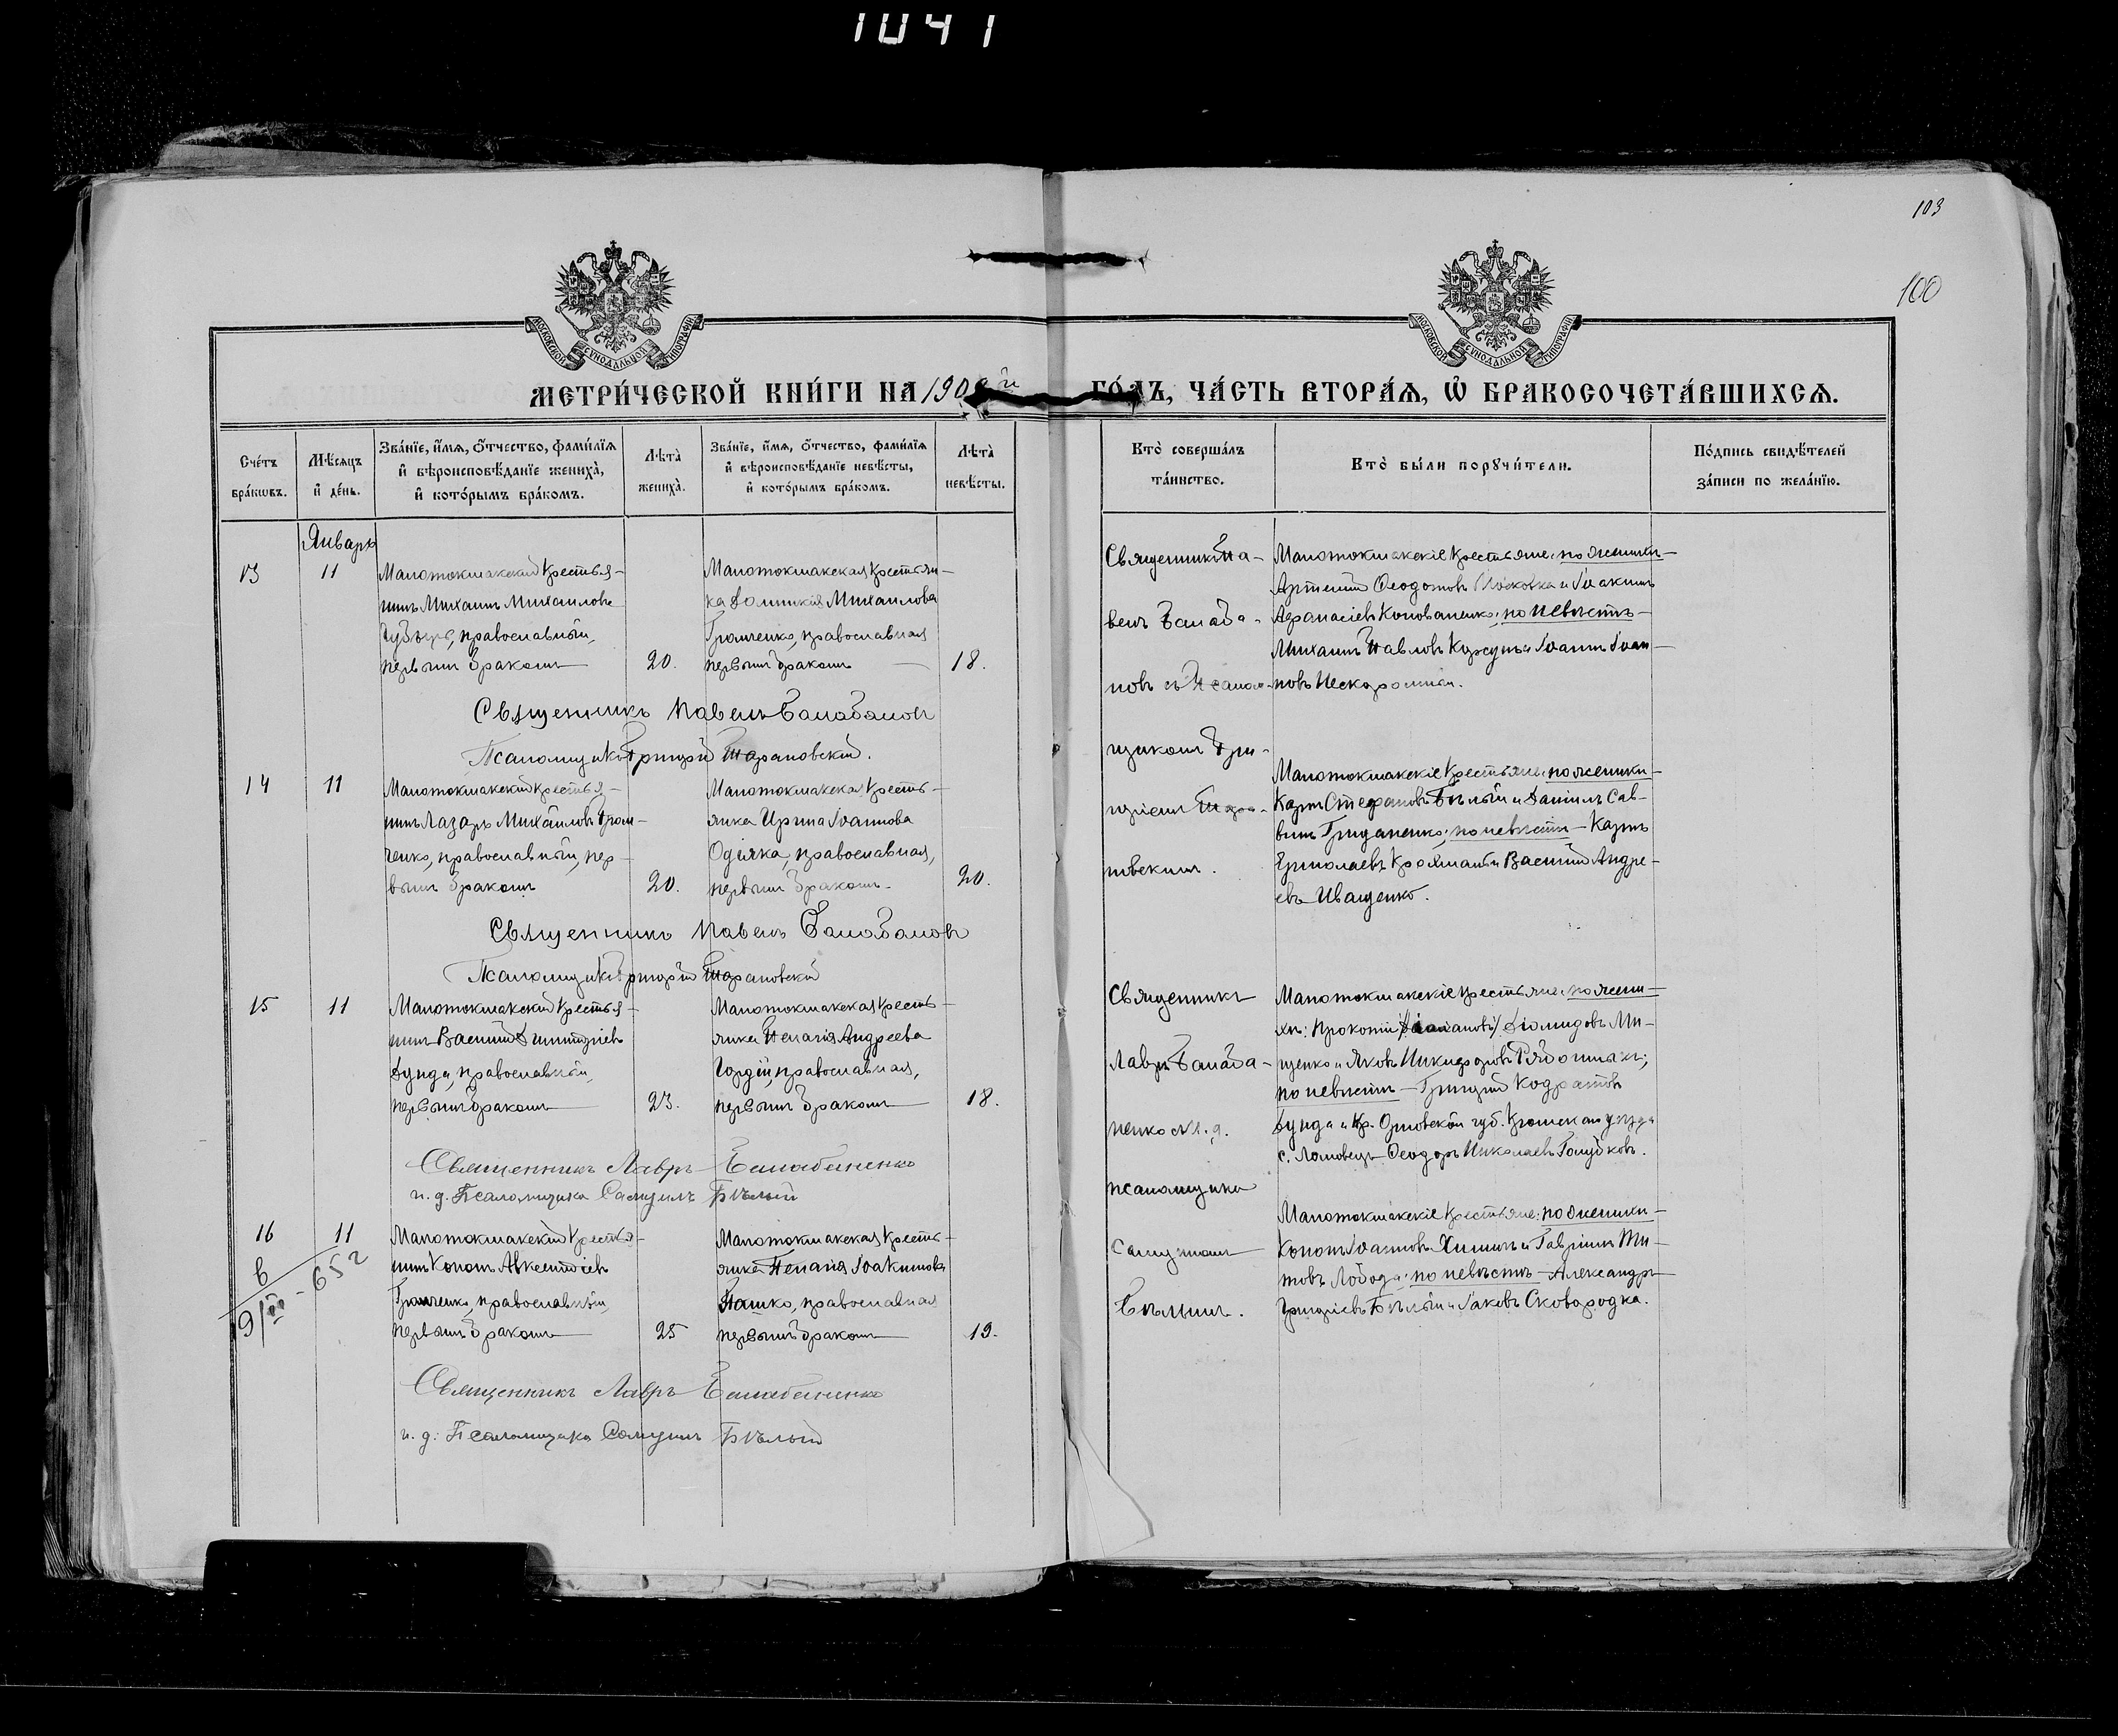 1041
103
100
МОСКОВСКОЙ СУНОДАЛЬНОЙ ТИПОГРАФІИ
МОСКОВСКОЙ СУНОДАЛЬНОЙ ТИПОГРАФІИ
МЕТРИ́ЧЕСКОЙ КНИ́ГИ НА 190 й ГО́ДЪ, ЧА́СТЬ ВТОРА́Ѧ, Ѽ БРАКОСОЧЕТА́ВШИХСѦ.
Сче́тъ бра́кѡвъ.
Мѣ́сѧцъ и҆ де́нь.
Зва́нїе, и҆́мѧ, ѻ҆́тчество, фами́лїѧ и҆ вѣроисповѣ́данїе жениха̀, и҆ кото́рымъ бра́комъ.
Лѣта̀ жениха̀.
Зва́нїе, и҆́мѧ, ѻ҆́тчество, фами́лїѧ и҆ вѣроисповѣ́данїе невѣ́сты, и҆ кото́рымъ бра́комъ.
Лѣта̀ невѣ́сты.
Кто̀ соверша́лъ та́инство.
Кто̀ бы́ли порꙋчи́тели.
По́дпись свидѣ́телей за́писи по жела́нїю.
Январь
13
11
Малотокмакский крестья-
нинъ Михаилъ Михаиловъ
православный,
первымъ бракомъ
20.
Малотокмакская крестьян-
ка Домникія Михаилова
Громченко, православная
первымъ бракомъ
18.
Священникъ Па-
велъ Балаба-
новъ съ Псалом-
щикомъ Гри-
горіемъ Тара-
новскимъ.
Малотокмакскіе крестьяне: по женихѣ-
Артемій Ѳеодотовъ и Іоакимъ
Аѳанасіевъ Коноваленко; по невѣстѣ-
Михаилъ Павловъ Коржунъ и Іоаннъ Іоан-
новъ Нескоромный.
Священникъ Павелъ Балабановъ
Псаломщикъ Григорій Тарановскій.
14
11
Малотокмакский крестья-
нинъ Лазарь Михаиловъ Гром-
ченко, православный, пер-
вымъ бракомъ
20.
Малотокмакская кресть-
янка Ирина Іоаннова
Одняка, православная,
первымъ бракомъ-
20.
Малотокмакскіе крестьяне: по женихѣ-
Карпъ Стефановъ Бѣлый и Даніилъ Сав-
винъ Гриданенко; по невѣстѣ- Карпъ
Ермолаевъ и Василій Андре-
евъ Иващенко.
Священникъ Павелъ Балабановъ
Псаломщикъ Григорій Тарановскій
15
11
Малотокмакский крестья-
нинъ Василій Димитріевъ
Дунда, православный,
первымъ бракомъ
23.
Малотокмакская кресть-
янка Пелагія Андреева
Гордій, православная,
первымъ бракомъ
18.
Священникъ
Лавръ Балаба-
ненко съ и. д.
псаломщика
Самуиломъ
Бѣлымъ.
Малотокмакскіе крестьяне: по жени-
хѣ: Прокопій Діомидовъ Ми-
щенко и Яковъ Никифоровъ
по невѣстѣ- Григорій Кодратовъ
Дунда и кр. Орловской губ. Кромскаго уѣзда
с. Ломовецъ- Ѳеодоръ Николаевъ Голубковъ.
Священникъ Лавръ Балабаненко
и. д. Псаломщика Самуилъ Бѣлый
16
11
Малотокмакский крестья-
нинъ Кононъ Авксентіевъ
Громченко, православный,
первымъ бракомъ
25
Малотокмакская кресть-
янка Пелагія Іоакимова
Пашко, православная
первымъ бракомъ
19.
в
9/III - 652
Малотокмакскіе крестьяне: по женихѣ-
Кононъ Іоанновъ Химичъ и Гавріилъ Ти-
товъ Лобода; по невѣстѣ- Александръ
Григоріевъ Бѣлый и Іаковъ Сковородка.
Священникъ Лавръ Балабаненко
и. д. Псаломщика Самуилъ Бѣлый